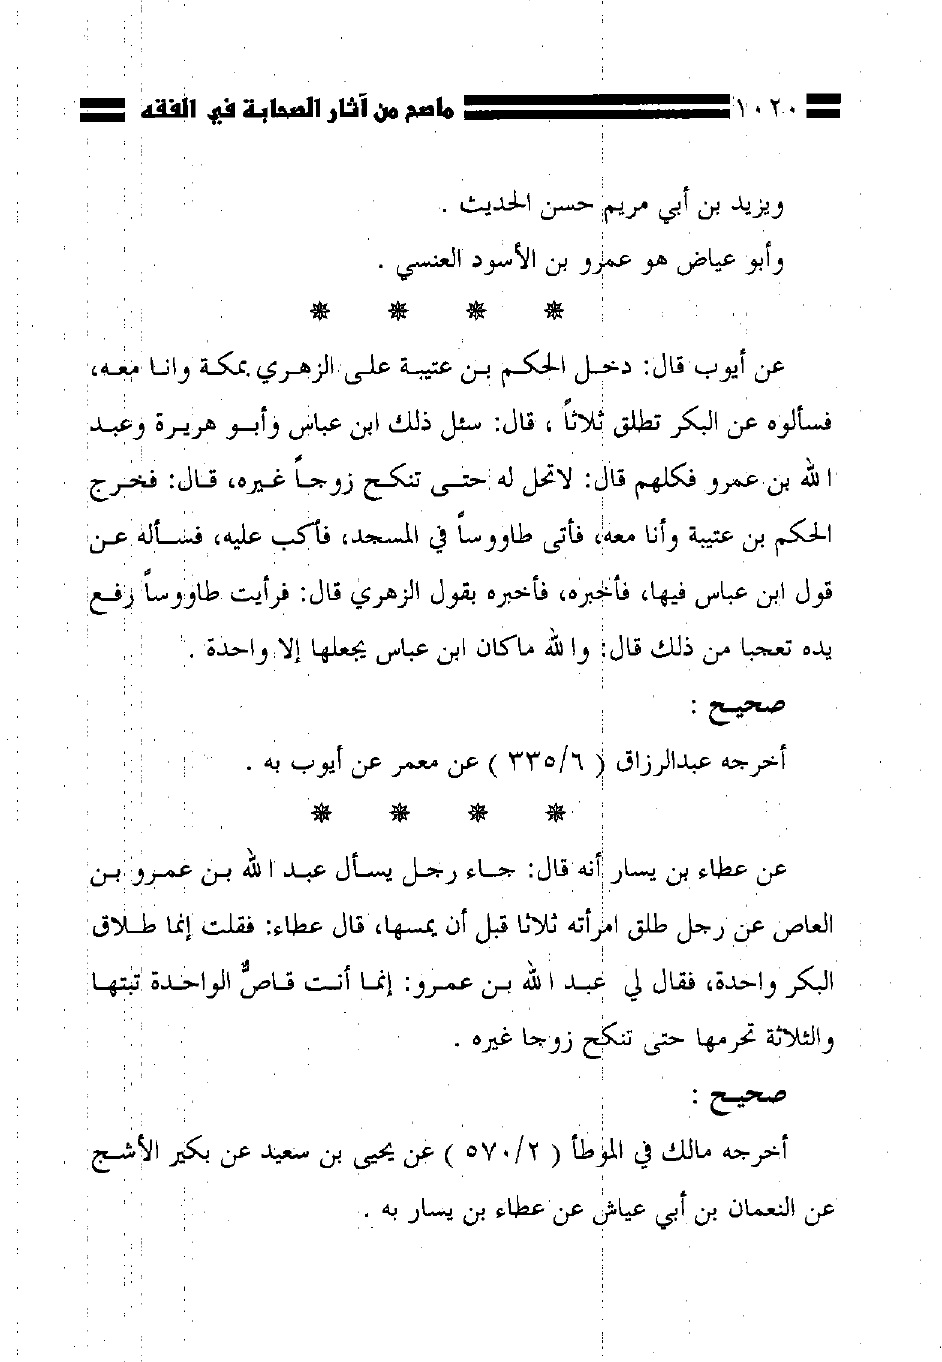 ١٠٢٠ ماصح من آثار الصحابة في الفقه
ويزيد بن أبي مريم حسن الحديث .
وأبو عياض هو عمرو بن الأسود العنسي .
عن أيوب قال: دخل الحكم بن عتيبة على الزهري بمكة وانا معه،
فسألوه عن البكر تطلق ثلاثاً ، قال: سئل ذلك ابن عباس وأبو هريرة وعبد
الله بن عمرو فكلهم قال: لاتحل له حتى تنكح زوجاً غيره، قال: فخرج
الحكم بن عتيبة وأنا معه، فأتى طاووساً في المسجد، فأكب عليه، فسأله عن
قول ابن عباس فيها، فأخبره، فأخبره بقول الزهري قال: فرأيت طاووساً رفع
يده تعجبا من ذلك قال: والله ماكان ابن عباس يجعلها إلا واحدة .
صحيح :
أخرجه عبدالرزاق ( ٣٣٥/٦ ) عن معمر عن أيوب به .
عن عطاء بن يسار أنه قال: جاء رجل يسأل عبد الله بن عمرو بن
العاص عن رجل طلق امرأته ثلاثا قبل أن يمسها، قال عطاء: فقلت إنما طلاق
البكر واحدة، فقال لي عبد الله بن عمرو: إنما أنت قاصٌّ الواحدة تبتها
والثلاثة تحرمها حتى تنكح زوجا غيره .
صحيح :
أخرجه مالك في الموطأ ( ٥٧٠/٢ ) عن يحيى بن سعيد عن بكير الأشج
عن النعمان بن أبي عياش عن عطاء بن يسار به .